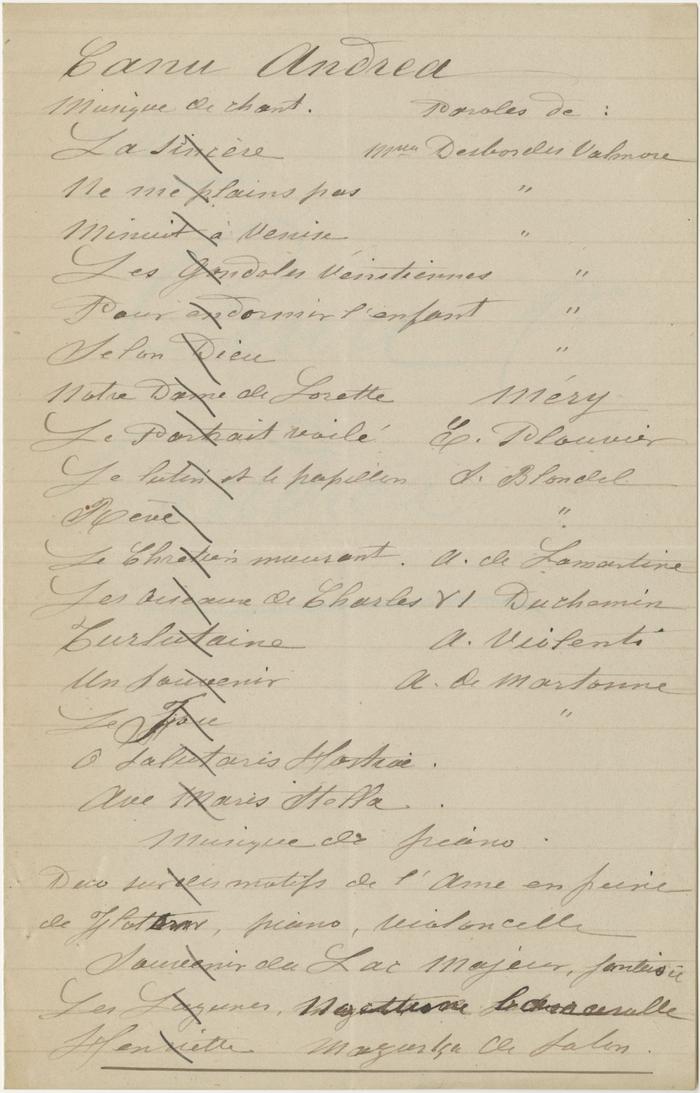 Canu Andrea
Musique de chant. Paroles de :
La Sincère Mme Desbordes Valmore
Ne me plains pas "
Minuit à Venise "
Les Gondoles Vénitiennes "
Pour endormir l'enfant "
Selon Dieu "
Notre Dame de Lorette Méry
Le Portrait voilé E. Plouvier
Le lutin et le papillon S. Blondel
Rêve "
Le Chrétien mourant. A. de Lamartine
Les oiseaux de Charles VI Duchemin
Turlutaine A. Violenti
Un Souvenir A. de Martonne
Le "
O Salutaris Hostia.
Ave Maris Stella.
Musique de piano.
Duo sur des motifs de l'Ame en peine
de Flotow, piano, violoncelle
Souvenir du Lac Majeur, fantaisie
Les Lagunes, barcarolle
Henriette Mazurka de Salon.